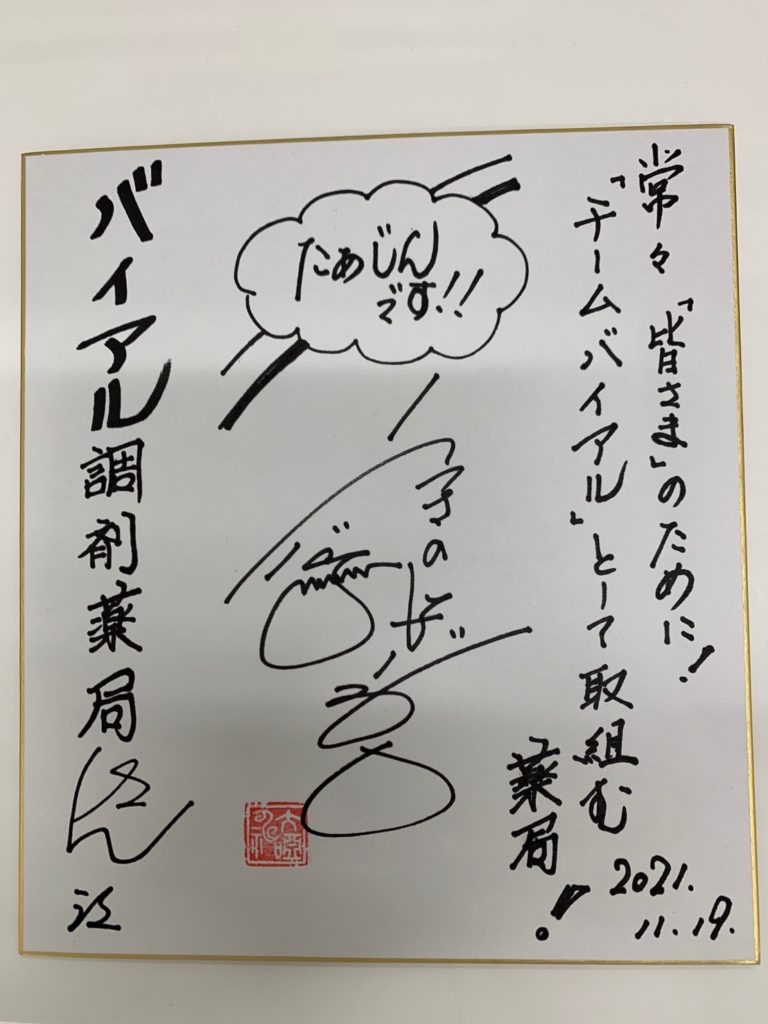 常々「皆さまのために!
「チームバイアル」として取組む
薬局!
2021.
11.19.
たぁじん
です!!
バイアル調剤薬局
さん
江